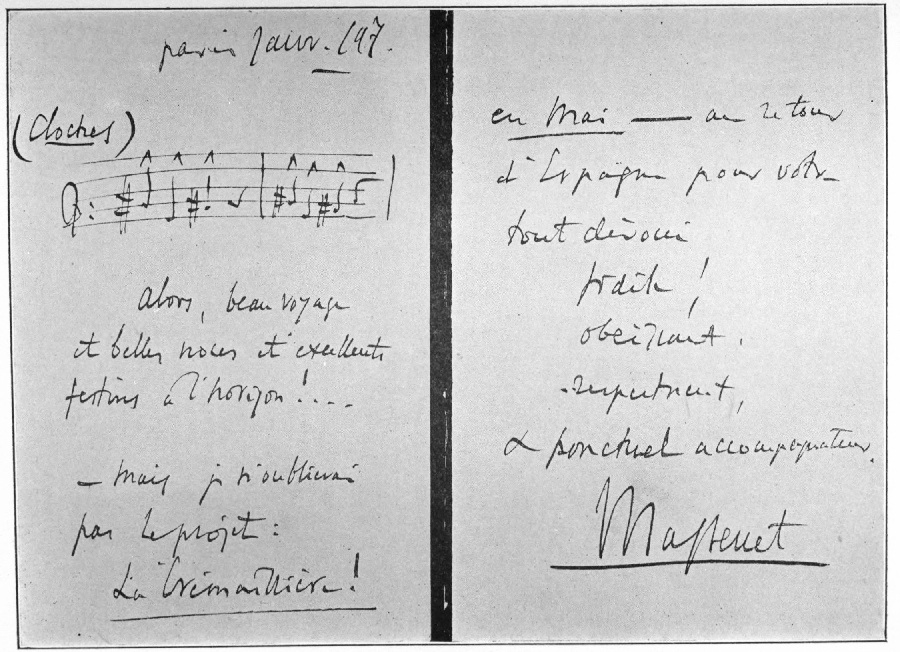 paris Janv. /97.
(Cloches)
Alors, beau voyage
et belles noces et excellents
festins à l'horizon !....
— Mais je n'oublierai
pas le projet :
La Crémaillère !
en Mai — au retour
d'Espagne pour votre
tout dévoué
fidèle !
obéissant,
respectueux,
& ponctuel accompagnateur.
Massenet